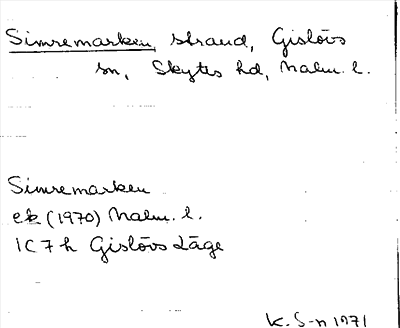 Simremarken, strand, Gislövs
sn, Skytts hd, Malm. l.
Simremarken
ek (1970) Malm. l.
1C7h Gislövs Läge
K. S-n 1971